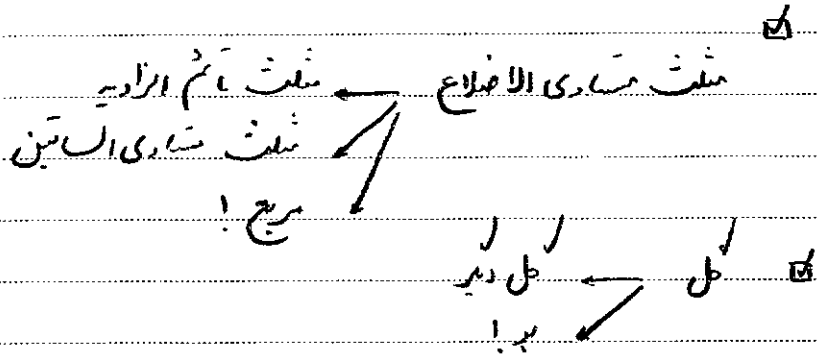 ☑
مثلث متساوی الاضلاع ← مثلث قائم الزاویه
مثلث متساوی الساقین
مربع !
☑ گل ← گل دیگر
!